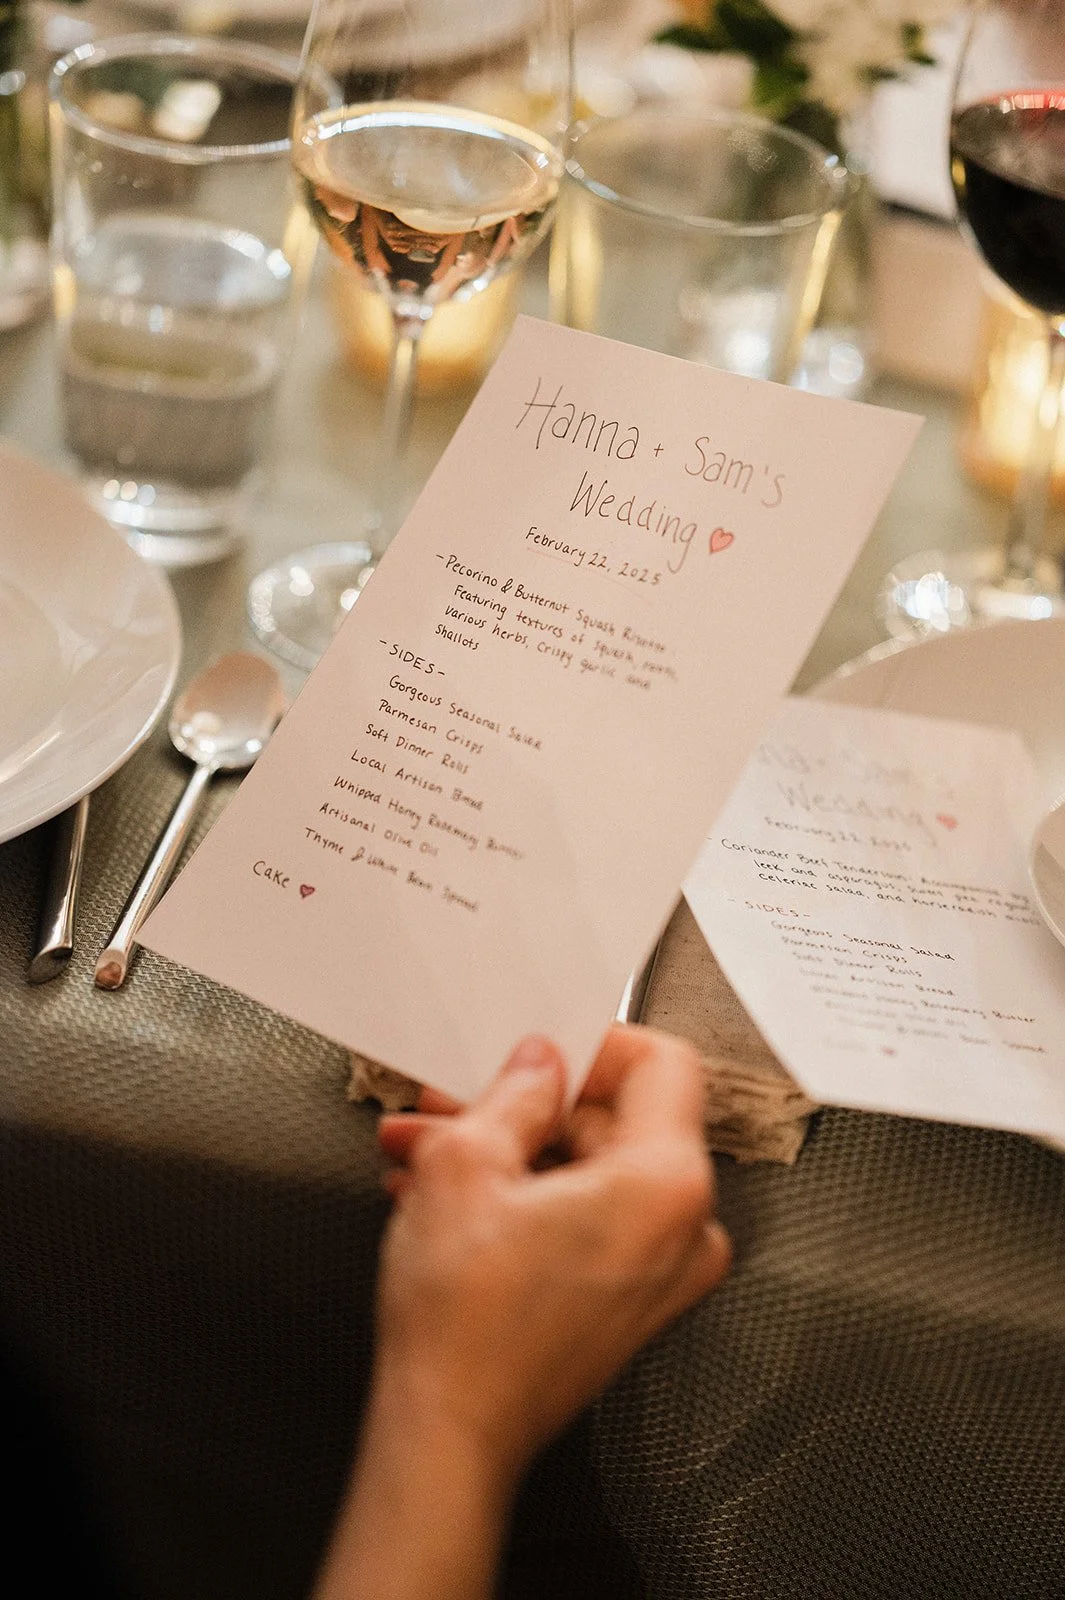 Hanna + Sam's
Wedding
February 22, 2025
- Pecorino & Butternut Squash Risotto:
Featuring textures of squash,
various herbs, crispy garlic and
Shallots
- SIDES -
Gorgeous Seasonal Salad
Parmesan Crisps
Soft Dinner Rolls
Local Artisan Bread
Whipped Honey Rosemary Butter
Artisanal Olive Oil
Thyme & White Bean Spread
Cake
Wedding
February 22, 2025
- Coriander Beef Tenderloin: Accompanied by
leek and asparagus, sweet pea
celeriac salad, and horseradish aioli
- SIDES -
Gorgeous Seasonal Salad
Parmesan Crisps
Soft Dinner Rolls
Local Artisan Bread
Whipped Honey Rosemary Butter